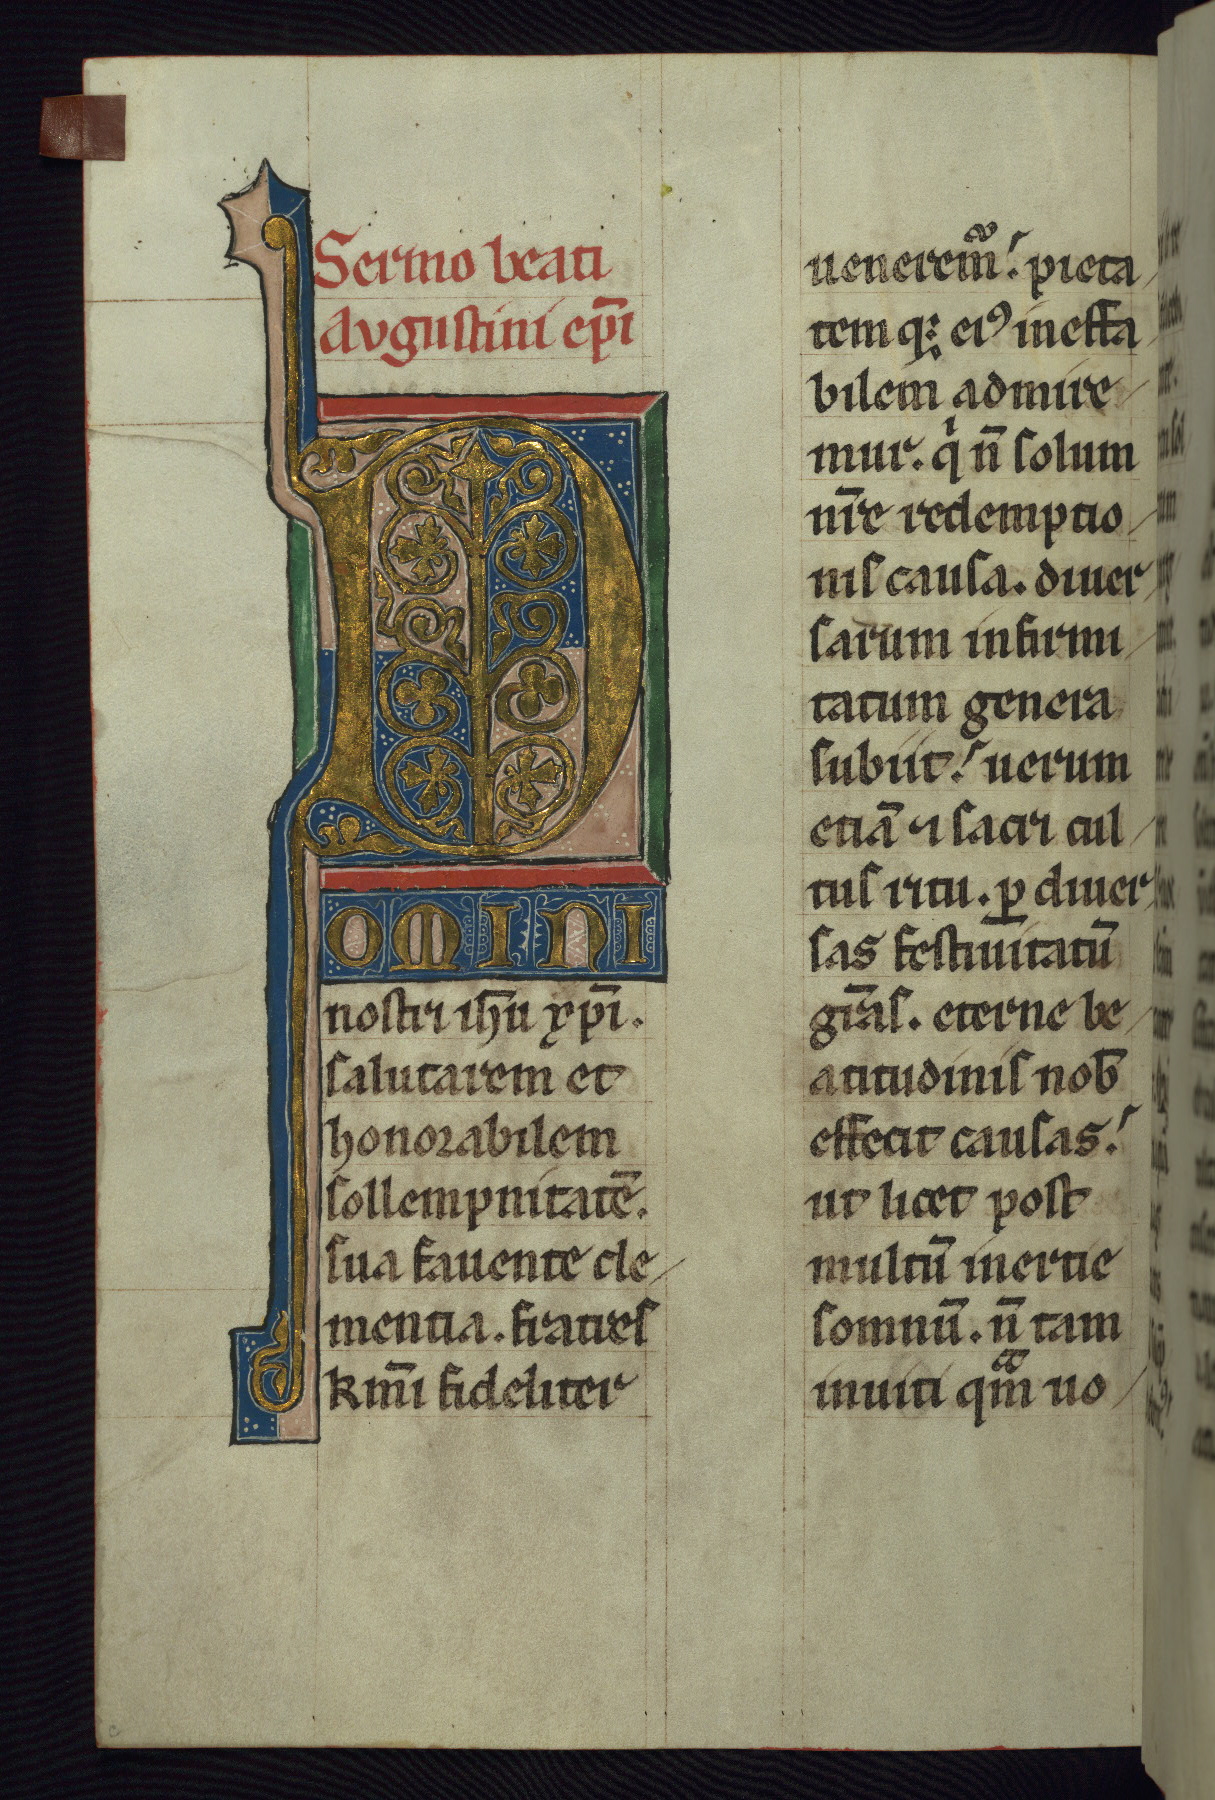 Sermo beati
Augustini ep̅i
D
OMINI
nostri ih̅u xp̅i.
salutarem et
honorabilem
sollempnitatē.
sua fauente cle/
mentia. fratres
km̅i fideliter
uenerem̅. pieta/
tem q; ei⁹ ineffa/
bilem admire/
mur. qͥ n̅ solum
nr̅e redemptio/
nis causa. diuer/
sarum infirmi/
tatum genera
subiit. uerum
etiā ⁊ sacri cul/
tus ritu. ꝑ diuer/
sas festiuitatū
gr̅as. eterne be/
atitudinis nob̅
effecit causas.
ut licet post
multū inertie
somnū. n̅ tam
inuiti qᵃm uo/